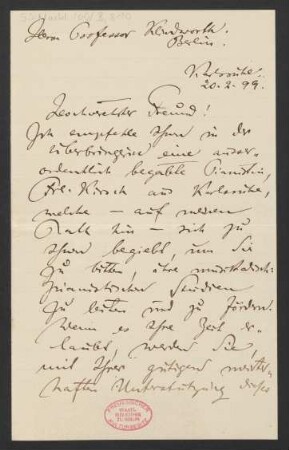 Herrn Professor Klindworth.
Berlin.
Karlsruhe.
20.2.99.
Geschätzter Freund!
Ich empfehle Ihnen in der
Überbringerin eine ausser-
ordentlich begabte Pianistin,
Frl. Kirsch aus Karlsruhe,
welche – auf meinen
Rath hin – sich zu
Ihnen begiebt, um Sie
zu bitten, ihre musikalisch-
pianistischen Studien
zu leiten und zu fördern.
Wenn es Ihre Zeit er-
laubt, werden Sie,
mit Ihrer gütigen meister-
haften Unterstützung diese